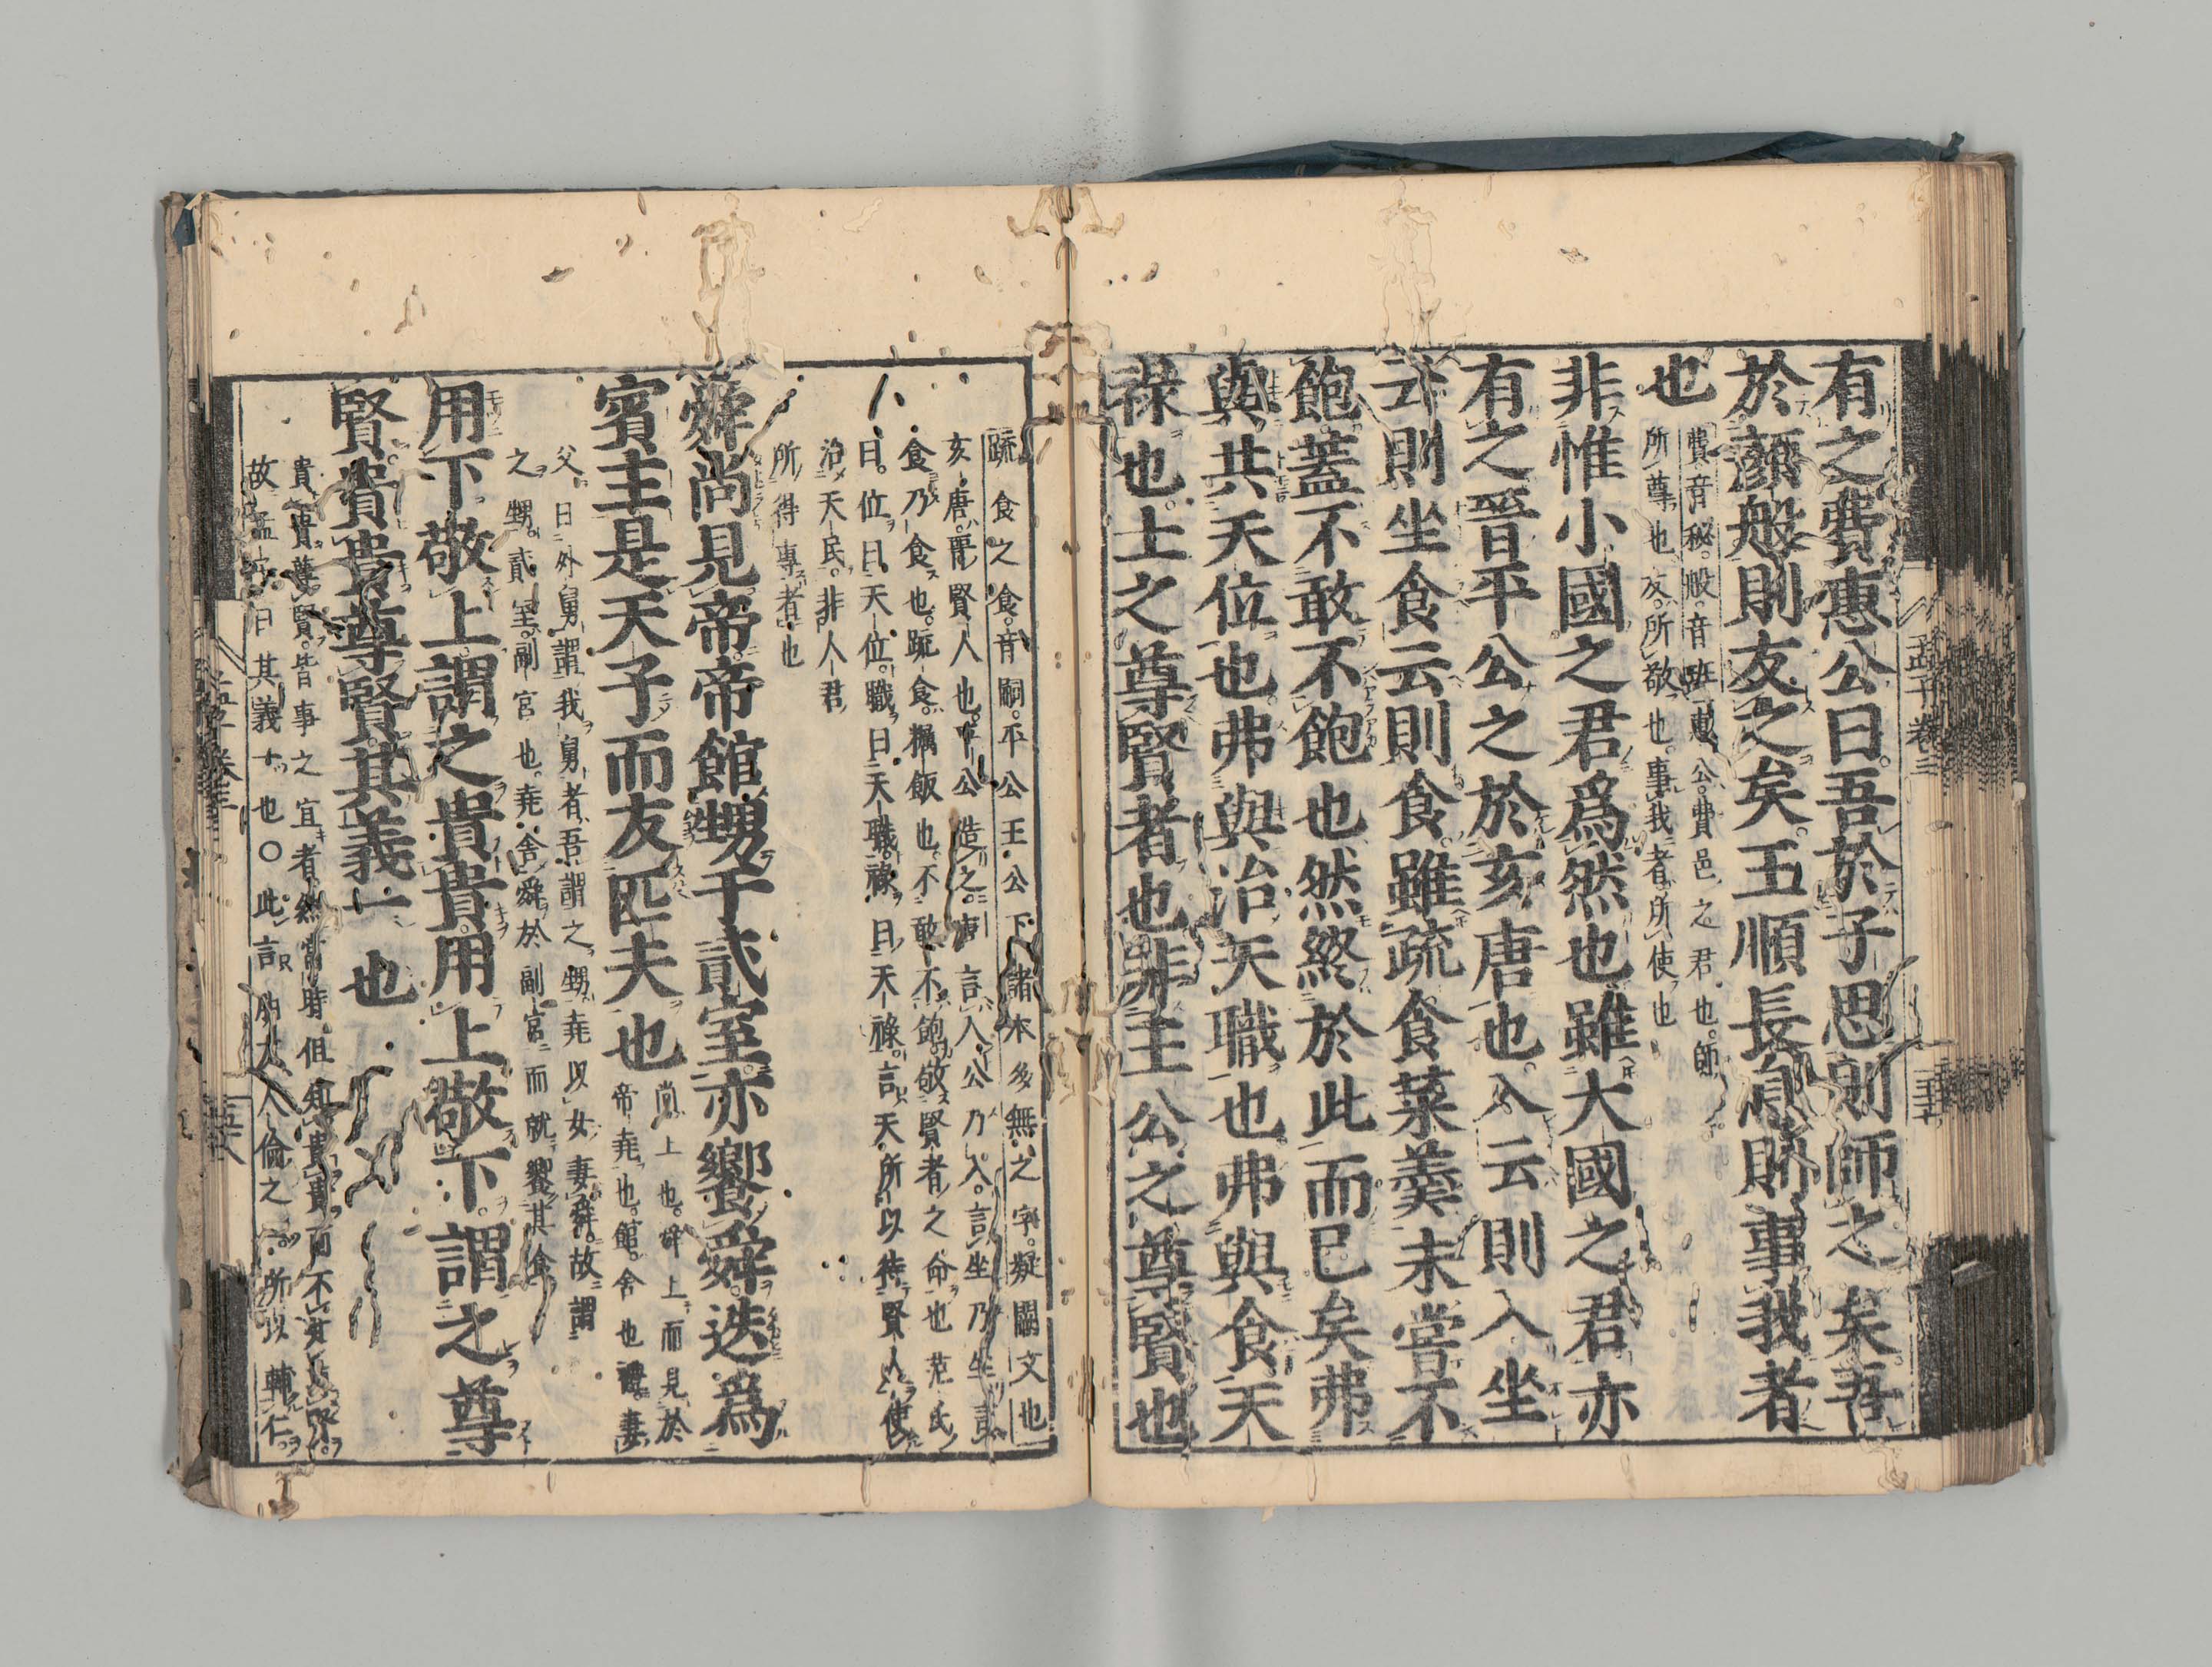 有之費惠公曰吾於子思則師之矣吾
於顔般則友之矣王順長息則事我者
也
費音秘般音班惠公費邑之君也師
所尊也友所敬也事我者所使也
非惟小國之君爲然也雖大國之君亦
有之晉平公之於亥唐也入云則入坐
云則坐食云則食雖疏食菜羹未嘗不
飽蓋不敢不飽也然終於此而已矣弗
與共天位也弗與治天職也弗與食天
祿也士之尊賢者也非王公之尊賢也
疏食之食音嗣平公王公下諸本多無之字疑闕文也
亥唐晉賢人也平公造之唐言入公乃入言坐乃坐言
食乃食也疏食糲飯也不敢不飽敬賢者之命也范氏
曰位曰天位職曰天職祿曰天祿言天所以待賢人使
治天民非人君
所得專者也
舜尚見帝帝館甥于貳室亦饗舜迭爲
賓主是天子而友匹夫也
尚上也舜上而見於
帝堯也館舍也禮妻
父曰外舅謂我舅者吾謂之甥堯以女妻舜故謂
之甥貳室副宮也堯舍舜於副宮而就饗其食
用下敬上謂之貴貴用上敬下謂之尊
賢貴貴尊賢其義一也
貴貴尊賢皆事之宜者然當時但知貴貴而不知尊賢
故孟子曰其義一也○此言朋友人倫之一所以輔仁
孟子卷三
孟子卷三